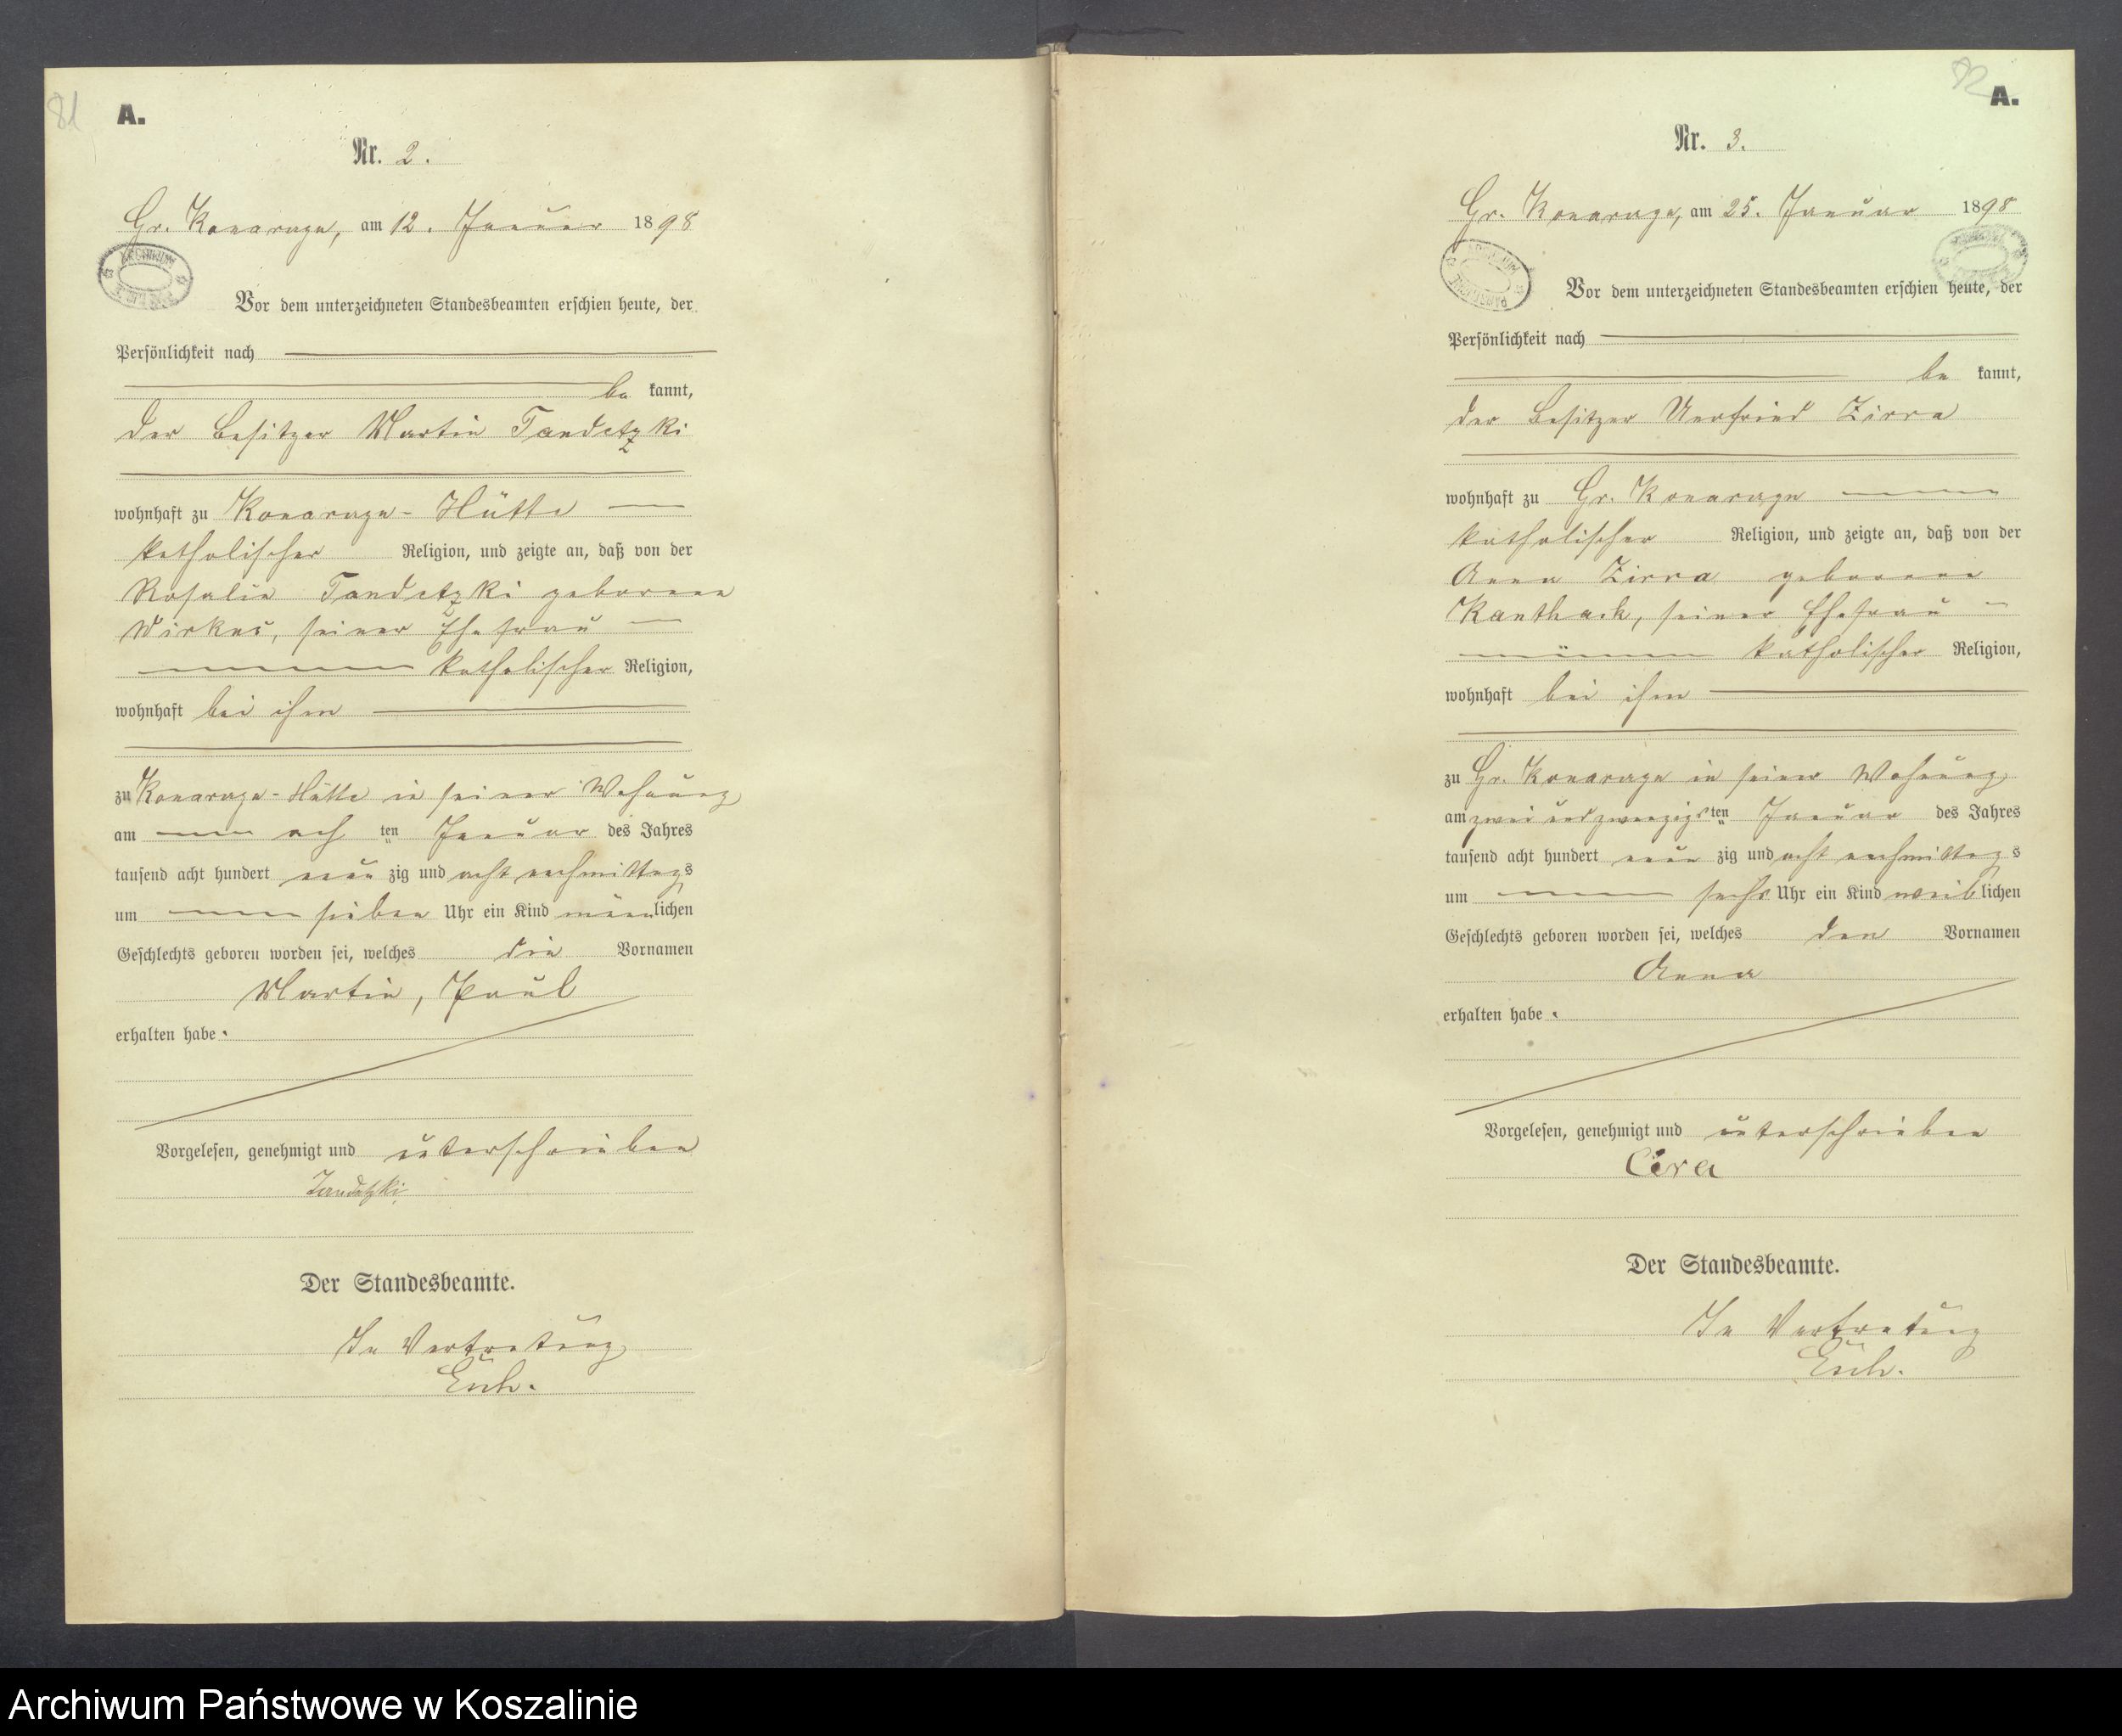 81
A.
Nr. 2.
Gr. Konarzyn, am 12. Januar 1898
Vor dem unterzeichneten Standesbeamten erschien heute, der
Persönlichkeit nach
be kannt,
der Besitzer Martin Tandetzki
wohnhaft zu Konarzyn-Hütte
katholischer Religion, und zeigte an, daß von der
Rosalie Tandetzki geborene
Wirkus, seiner Ehefrau
katholischer Religion,
wohnhaft bei ihm
zu Konarzyn-Hütte in seiner Wohnung
am ach ten Januar des Jahres
tausend acht hundert neun zig und acht nachmittags
um sieben Uhr ein Kind männlichen
Geschlechts geboren worden sei, welches die Vornamen
Martin, Paul
erhalten habe.
Vorgelesen, genehmigt und unterschrieben
Tandetzki
Der Standesbeamte.
In Vertretung
82
A.
Nr. 3.
Gr. Konarzyn, am 25. Januar 1898
Vor dem unterzeichneten Standesbeamten erschien heute, der
Persönlichkeit nach
be kannt,
der Besitzer Zirra
wohnhaft zu Gr. Konarzyn
katholischer Religion, und zeigte an, daß von der
Anna Zirra geborene
Kanthack, seiner Ehefrau
katholischer Religion,
wohnhaft bei ihm
zu Gr. Konarzyn in seiner Wohnung
am zwei und zwanzigsten Januar des Jahres
tausend acht hundert neun zig und acht nachmittags
um sechs Uhr ein Kind weiblichen
Geschlechts geboren worden sei, welches den Vornamen
Anna
erhalten habe.
Vorgelesen, genehmigt und unterschrieben
Cera
Der Standesbeamte.
In Vertretung
Archiwum Państwowe w Koszalinie